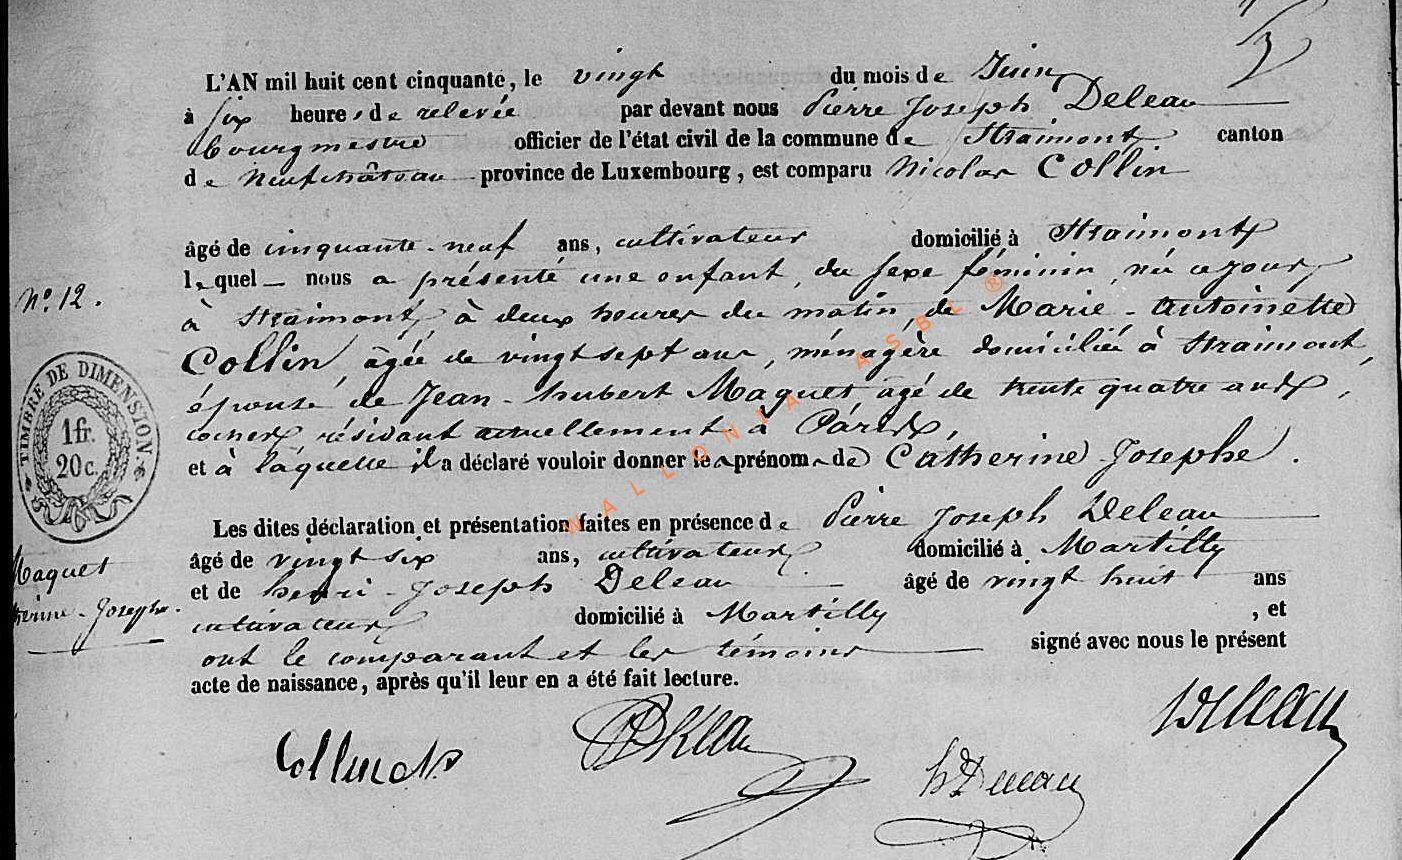 L'AN mil huit cent cinquante, le vingt du mois de Juin
à six heures de relevée par devant nous Pierre Joseph Deleau
bourgmestre officier de l'état civil de la commune de Straimont canton
de Neufchâteau province de Luxembourg, est comparu Nicolas Collin
âgé de cinquante-neuf ans, cultivateur domicilié à Straimont
lequel nous a présenté une enfant, du sexe féminin, née ce jour
N° 12.
à Straimont, à deux heures du matin, de Marie-Antoinette
Collin, âgée de vingt sept ans, ménagère domiciliée à Straimont,
épouse de Jean-hubert Maquet âgé de trente quatre ans,
cocher, résidant actuellement à Paris,
et à laquelle il a déclaré vouloir donner les prénoms de Catherine Josephe.
TIMBRE DE DIMENSION
1 fr.
20 c.
Les dites déclaration et présentation faites en présence de Pierre Joseph Deleau
âgé de vingt six ans, cultivateur domicilié à Martilly
et de henri-Joseph Deleau âgé de vingt huit ans
cultivateur domicilié à Martilly, et
ont le comparant et les témoins signé avec nous le présent
acte de naissance, après qu'il leur en a été fait lecture.
Maquet
herine-Josephe.
Deleau
WALLONIA ASBL ®